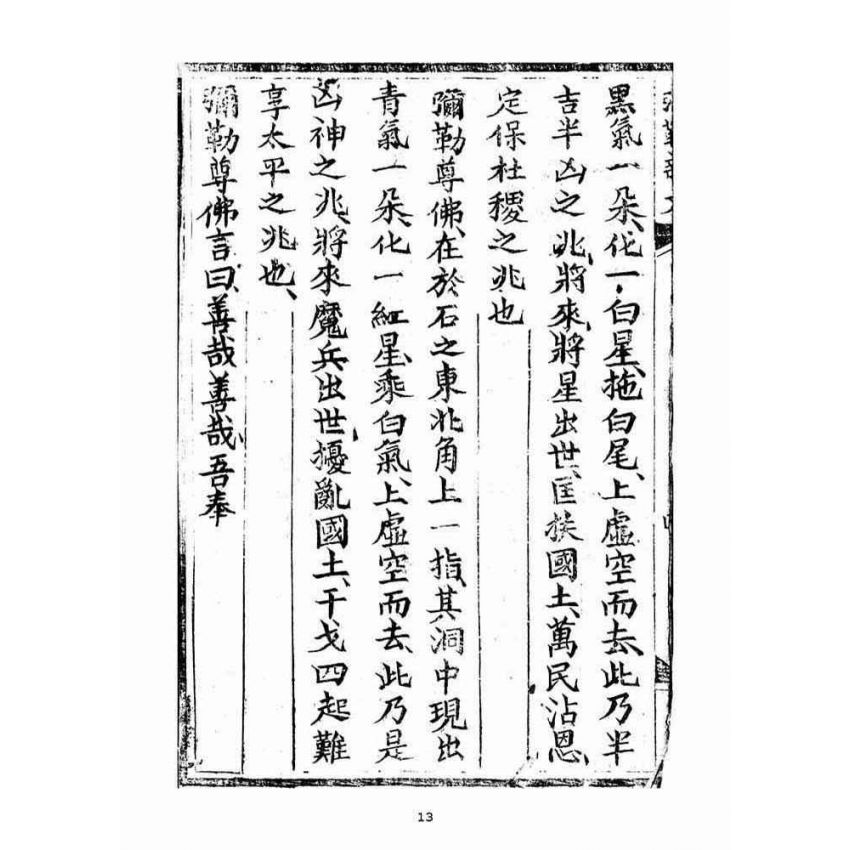 黑氣一朶、化一白星、拖白尾、上虛空而去、此乃半
吉半凶之兆、將來、將星出世、匡扶國土、萬民沾恩、
定保社稷之兆也
彌勒尊佛、在於石之東北角上一指、其洞中現出
青氣一朶、化一紅星、乘白氣、上虛空而去、此乃是
凶神之兆、將來魔兵出世、擾亂國土、干戈四起、難
享太平之兆也、
彌勒尊佛言曰、善哉善哉、吾奉
13